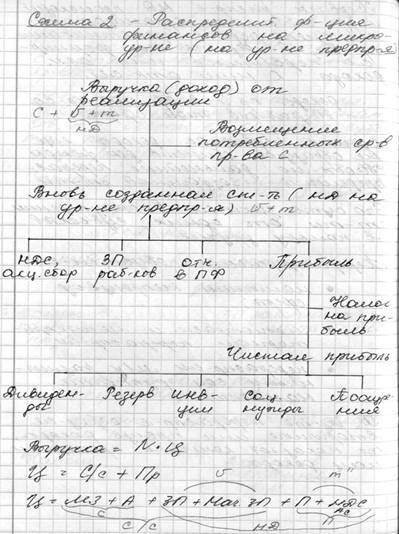 Схема 2 - Распределит. ф-ция
финансов на микро
ур-не (на ур-не предпр-я
Выручка (доход) от
реализации
C + v + m
НД
Возмещение
потребленных ср-в
пр-ва C
Вновь созданная ст-ть (НД на
ур-не предпр-я) v + m
НДС, ЗП отч. Прибыль
акц. сбор раб-ков в ПФ
Налог
на при-
быль
Чистая прибыль
Дивиден- Резерв Инв- Соц. Поощр
ды ции нужды ния
Выручка = N · Ц
Ц = С/с + Пр
v m
Ц = МЗ + А + ЗП + Нач. ЗП + П + НДС
Ас
с П
С/с НД